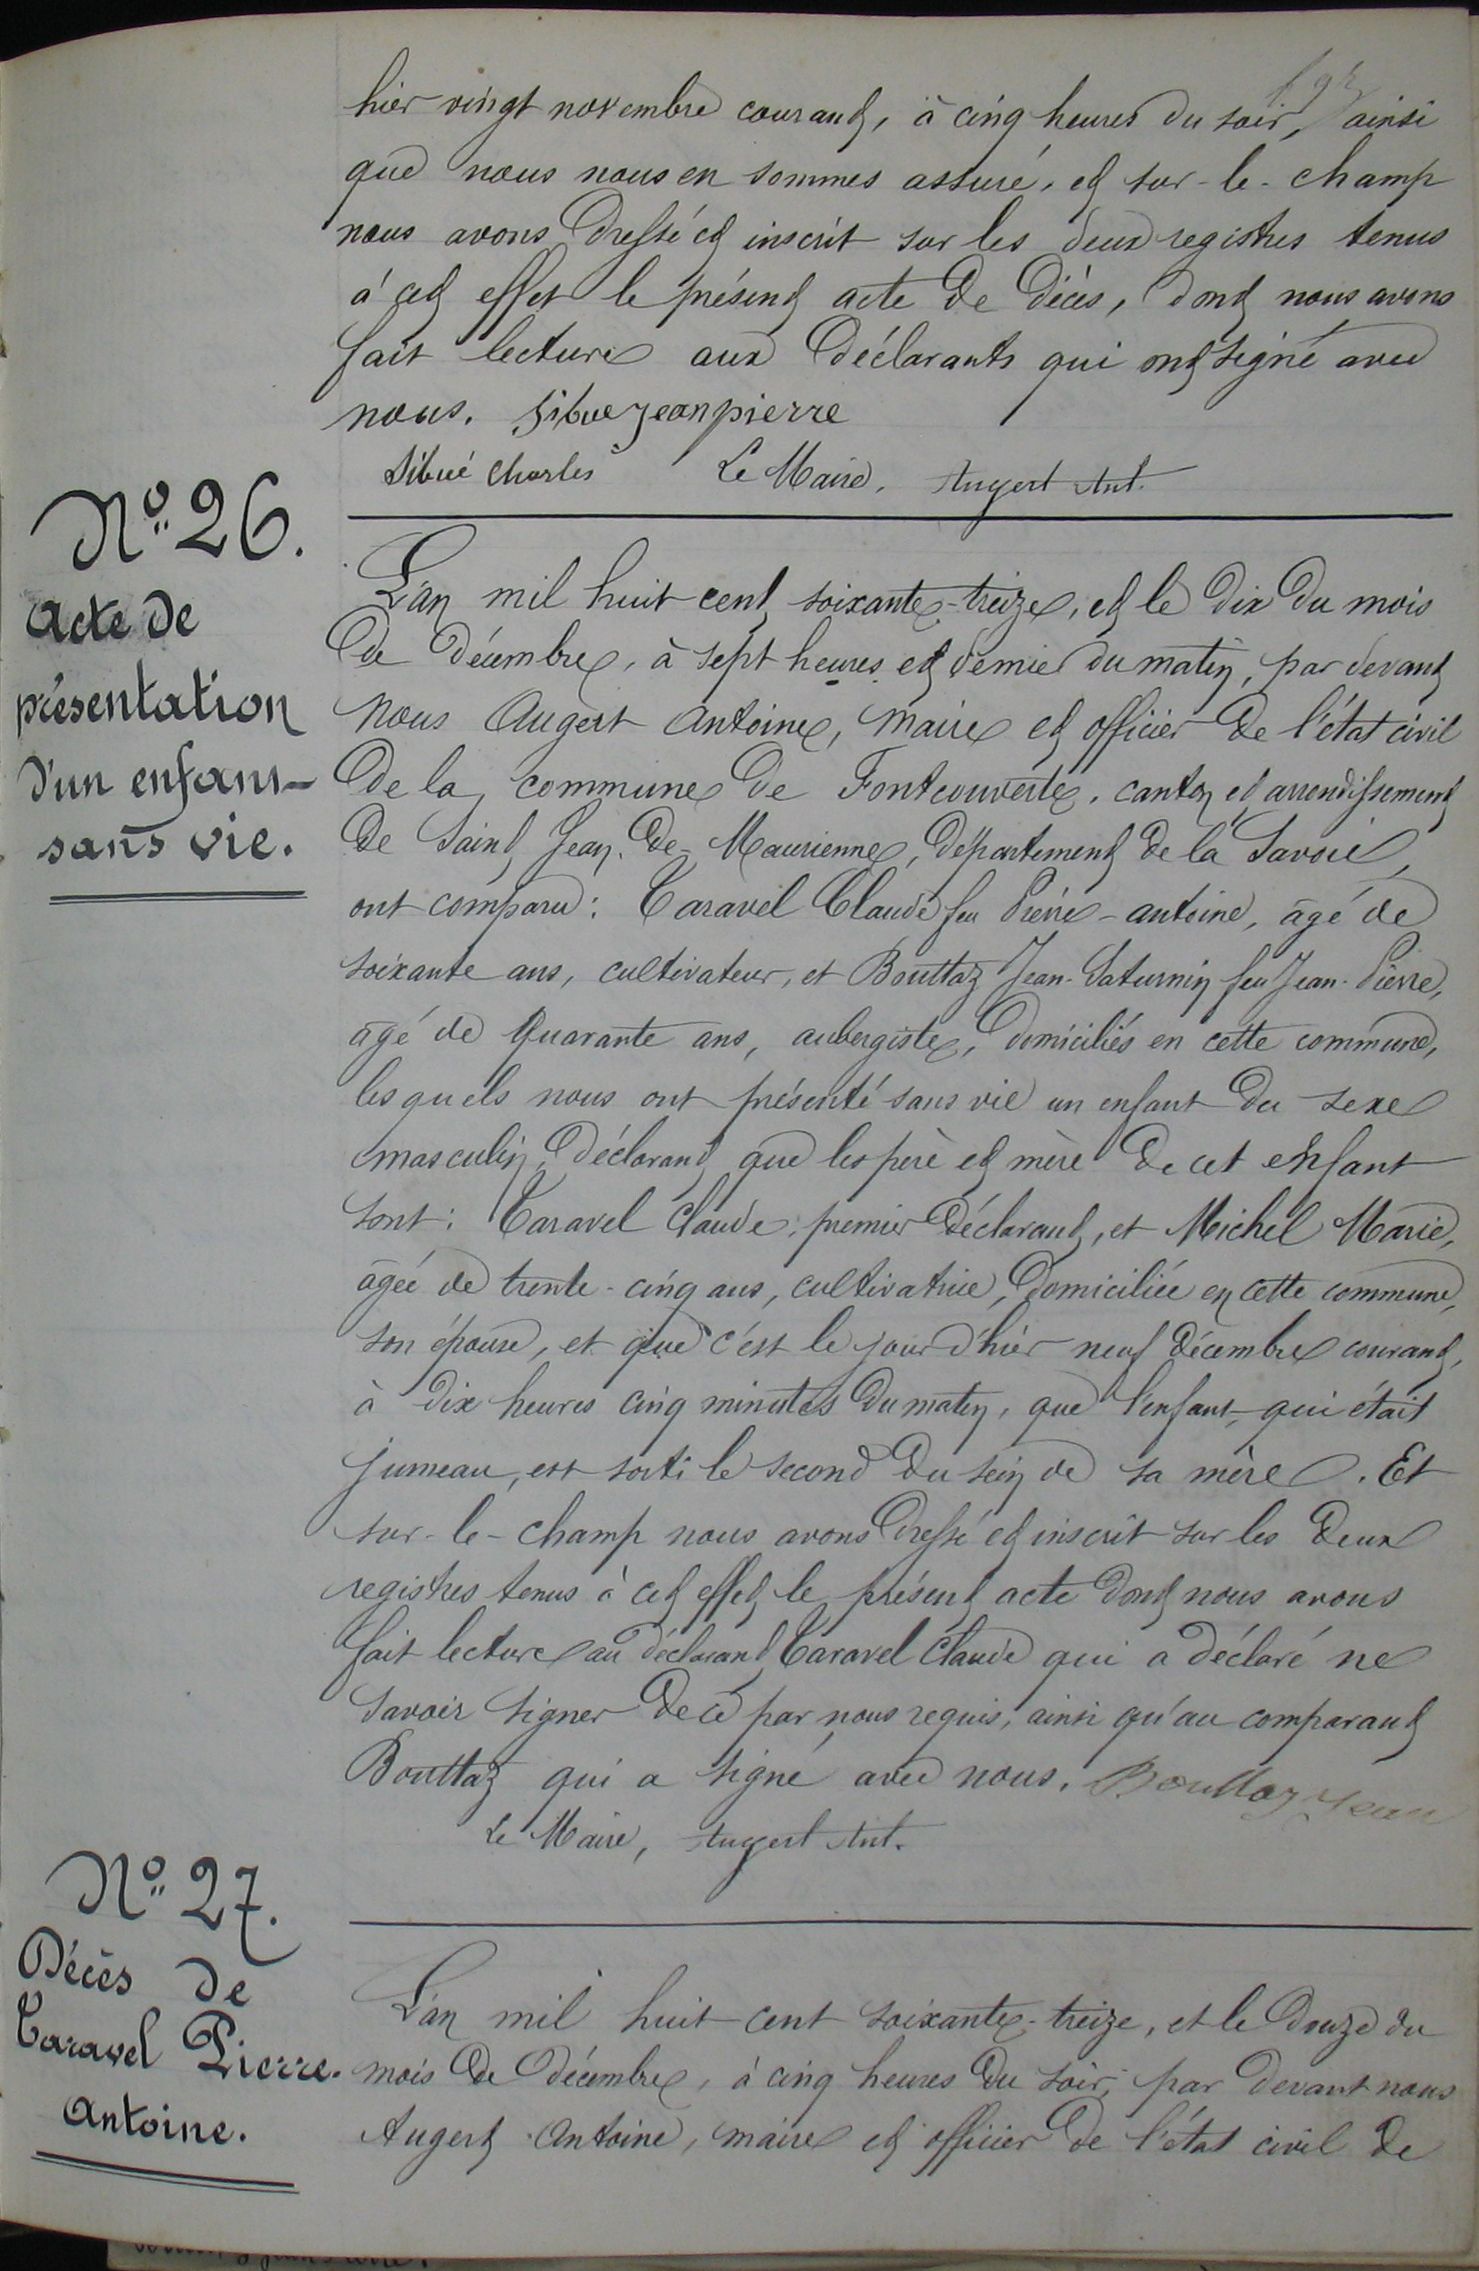 hier vingt novembre courant, à cinq heures du soir, ainsi
que nous nous en sommes assuré, et sur-le-champ
nous avons dressé et inscrit sur les deux registres tenus
à cet effet le présent acte de décès, dont nous avons
fait lecture aux déclarants qui ont signé avec
nous. Sibue jean pierre
Sibué Charles Le Maire, Augert Ant.
N° 26.
Acte de
présentation
d'un enfant
sans vie.
L'an mil huit cent soixante-treize, et le dix du mois
de décembre, à sept heures et demie du matin, par devant
Nous Augert Antoine, Maire et officier de l'état civil
de la commune de Fontcouverte, canton et arrondissement
de Saint Jean-de-Maurienne, département de la Savoie,
ont comparu : Taravel Claude feu Pierre-antoine, âgé de
soixante ans, cultivateur, et Bouttaz Jean-Saturnin feu Jean-Pierre,
âgé de quarante ans, aubergiste, domiciliés en cette commune,
lesquels nous ont présenté sans vie un enfant du sexe
masculin, déclarant que les père et mère de cet enfant
sont : Taravel Claude, premier déclarant, et Michel Marie,
âgée de trente-cinq ans, cultivatrice, domiciliée en cette commune,
son épouse, et que c'est le jour d'hier neuf décembre courant,
à dix heures cinq minutes du matin, que l'enfant, qui était
jumeau, est sorti le second du sein de sa mère. Et
sur-le-champ nous avons dressé et inscrit sur les deux
registres tenus à cet effet le présent acte dont nous avons
fait lecture au déclarant Taravel Claude qui a déclaré ne
savoir signer de ce par nous requis, ainsi qu'au comparant
Bouttaz qui a signé avec nous. Bouttaz Jean
Le Maire, Augert Ant.
N° 27.
Décès de
Taravel Pierre-
Antoine.
L'an mil huit cent soixante-treize, et le douze du
mois de décembre, à cinq heures du soir, par devant nous
Augert Antoine, maire et officier de l'état civil de